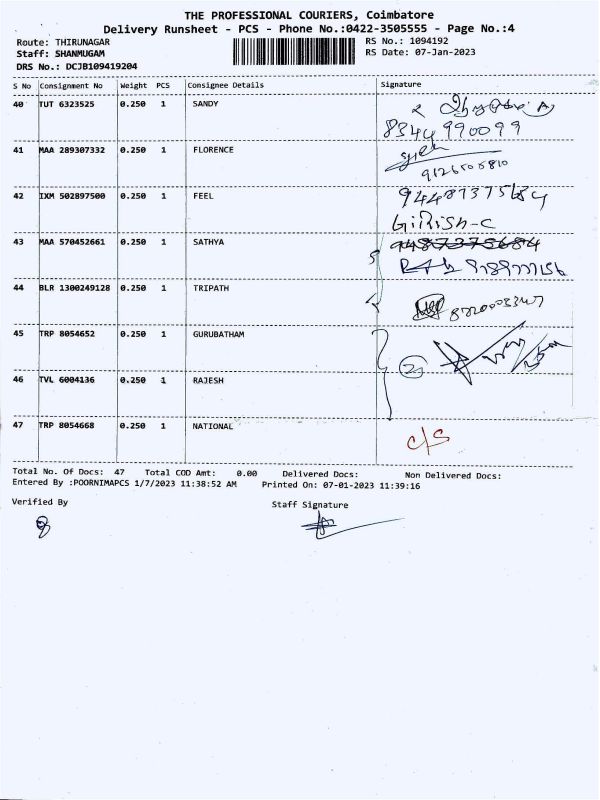 THE PROFESSIONAL COURIERS, Coimbatore
Delivery Runsheet - PCS - Phone No.:0422-3505555 - Page No.:4
Route: THIRUNAGAR
RS No.: 1094192
Staff: SHANMUGAM
RS Date: 07-Jan-2023
DRS No.: DCJB109419204
S No Consignment No Weight PCS Consignee Details Signature
40 TUT 6323525 0.250 1 SANDY
8344990099
41 MAA 289307332 0.250 1 FLORENCE
9126505810
42 IXM 502897500 0.250 1 FEEL
GiRiSh-C
43 MAA 570452661 0.250 1 SATHYA
44 BLR 1300249128 0.250 1 TRIPATH
45 TRP 8054652 0.250 1 GURUBATHAM
46 TVL 6004136 0.250 1 RAJESH
47 TRP 8054668 0.250 1 NATIONAL
c/s
Total No. Of Docs: 47 Total COD Amt: 0.00 Delivered Docs: Non Delivered Docs:
Entered By :POORNIMAPCS 1/7/2023 11:38:52 AM Printed On: 07-01-2023 11:39:16
Verified By
Staff Signature